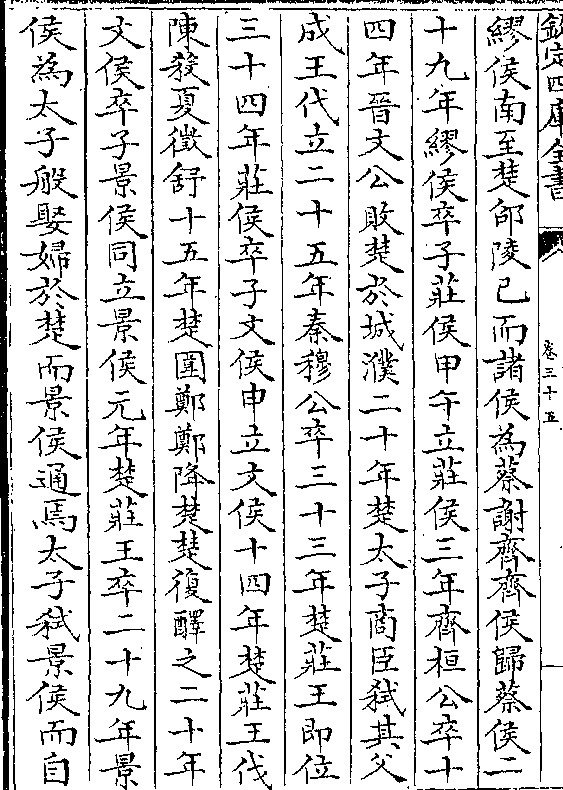 欽定四庫全書
卷三十五
繆侯南至楚邵陵已而諸侯為蔡謝齊齊侯歸蔡侯二
十九年繆侯卒子莊侯甲午立莊侯三年齊桓公卒十
四年晉文公敗楚於城濮二十年楚太子商臣弑其父
成王代立二十五年秦穆公卒三十三年楚莊王即位
三十四年莊侯卒子文侯申立文侯十四年楚莊王伐
陳殺夏徵舒十五年楚圍鄭鄭降楚楚復醳之二十年
文侯卒子景侯同立景侯元年楚莊王卒二十九年景
侯為太子般娶婦於楚而景侯通焉太子弑景侯而自